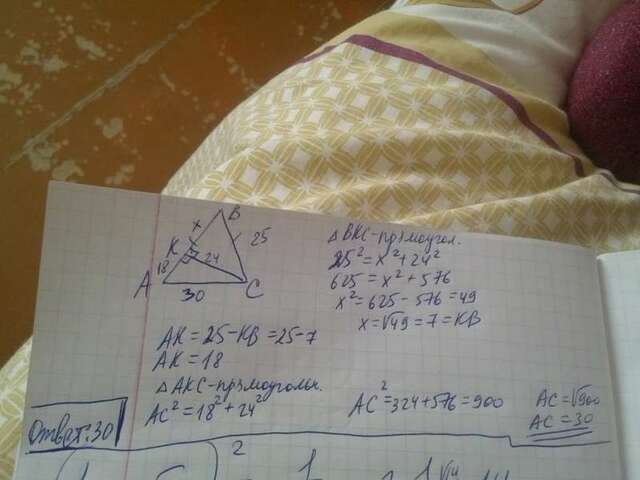 B
x
K
25
18
24
A
30
C
△ BKC-прямоугол.
25²=x²+24²
625=x²+576
x²=625-576=49
x=√49=7=KB
AK=25-KB=25-7
AK=18
△ AKC-прямоугольн.
AC²=18²+24²
AC²=324+576=900
AC=√900
AC=30
Ответ:30
2